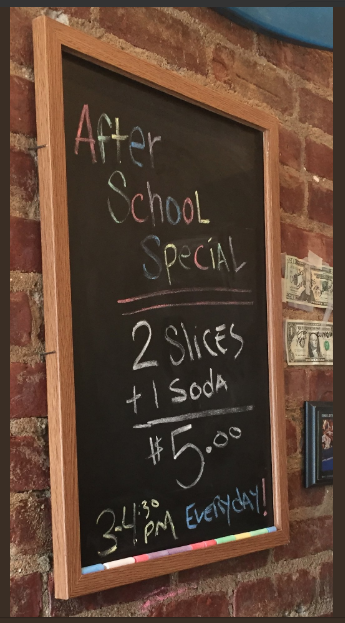 After
School
Special
2 Slices
+ 1 Soda
$5.00
3-4:30 PM Everyday!